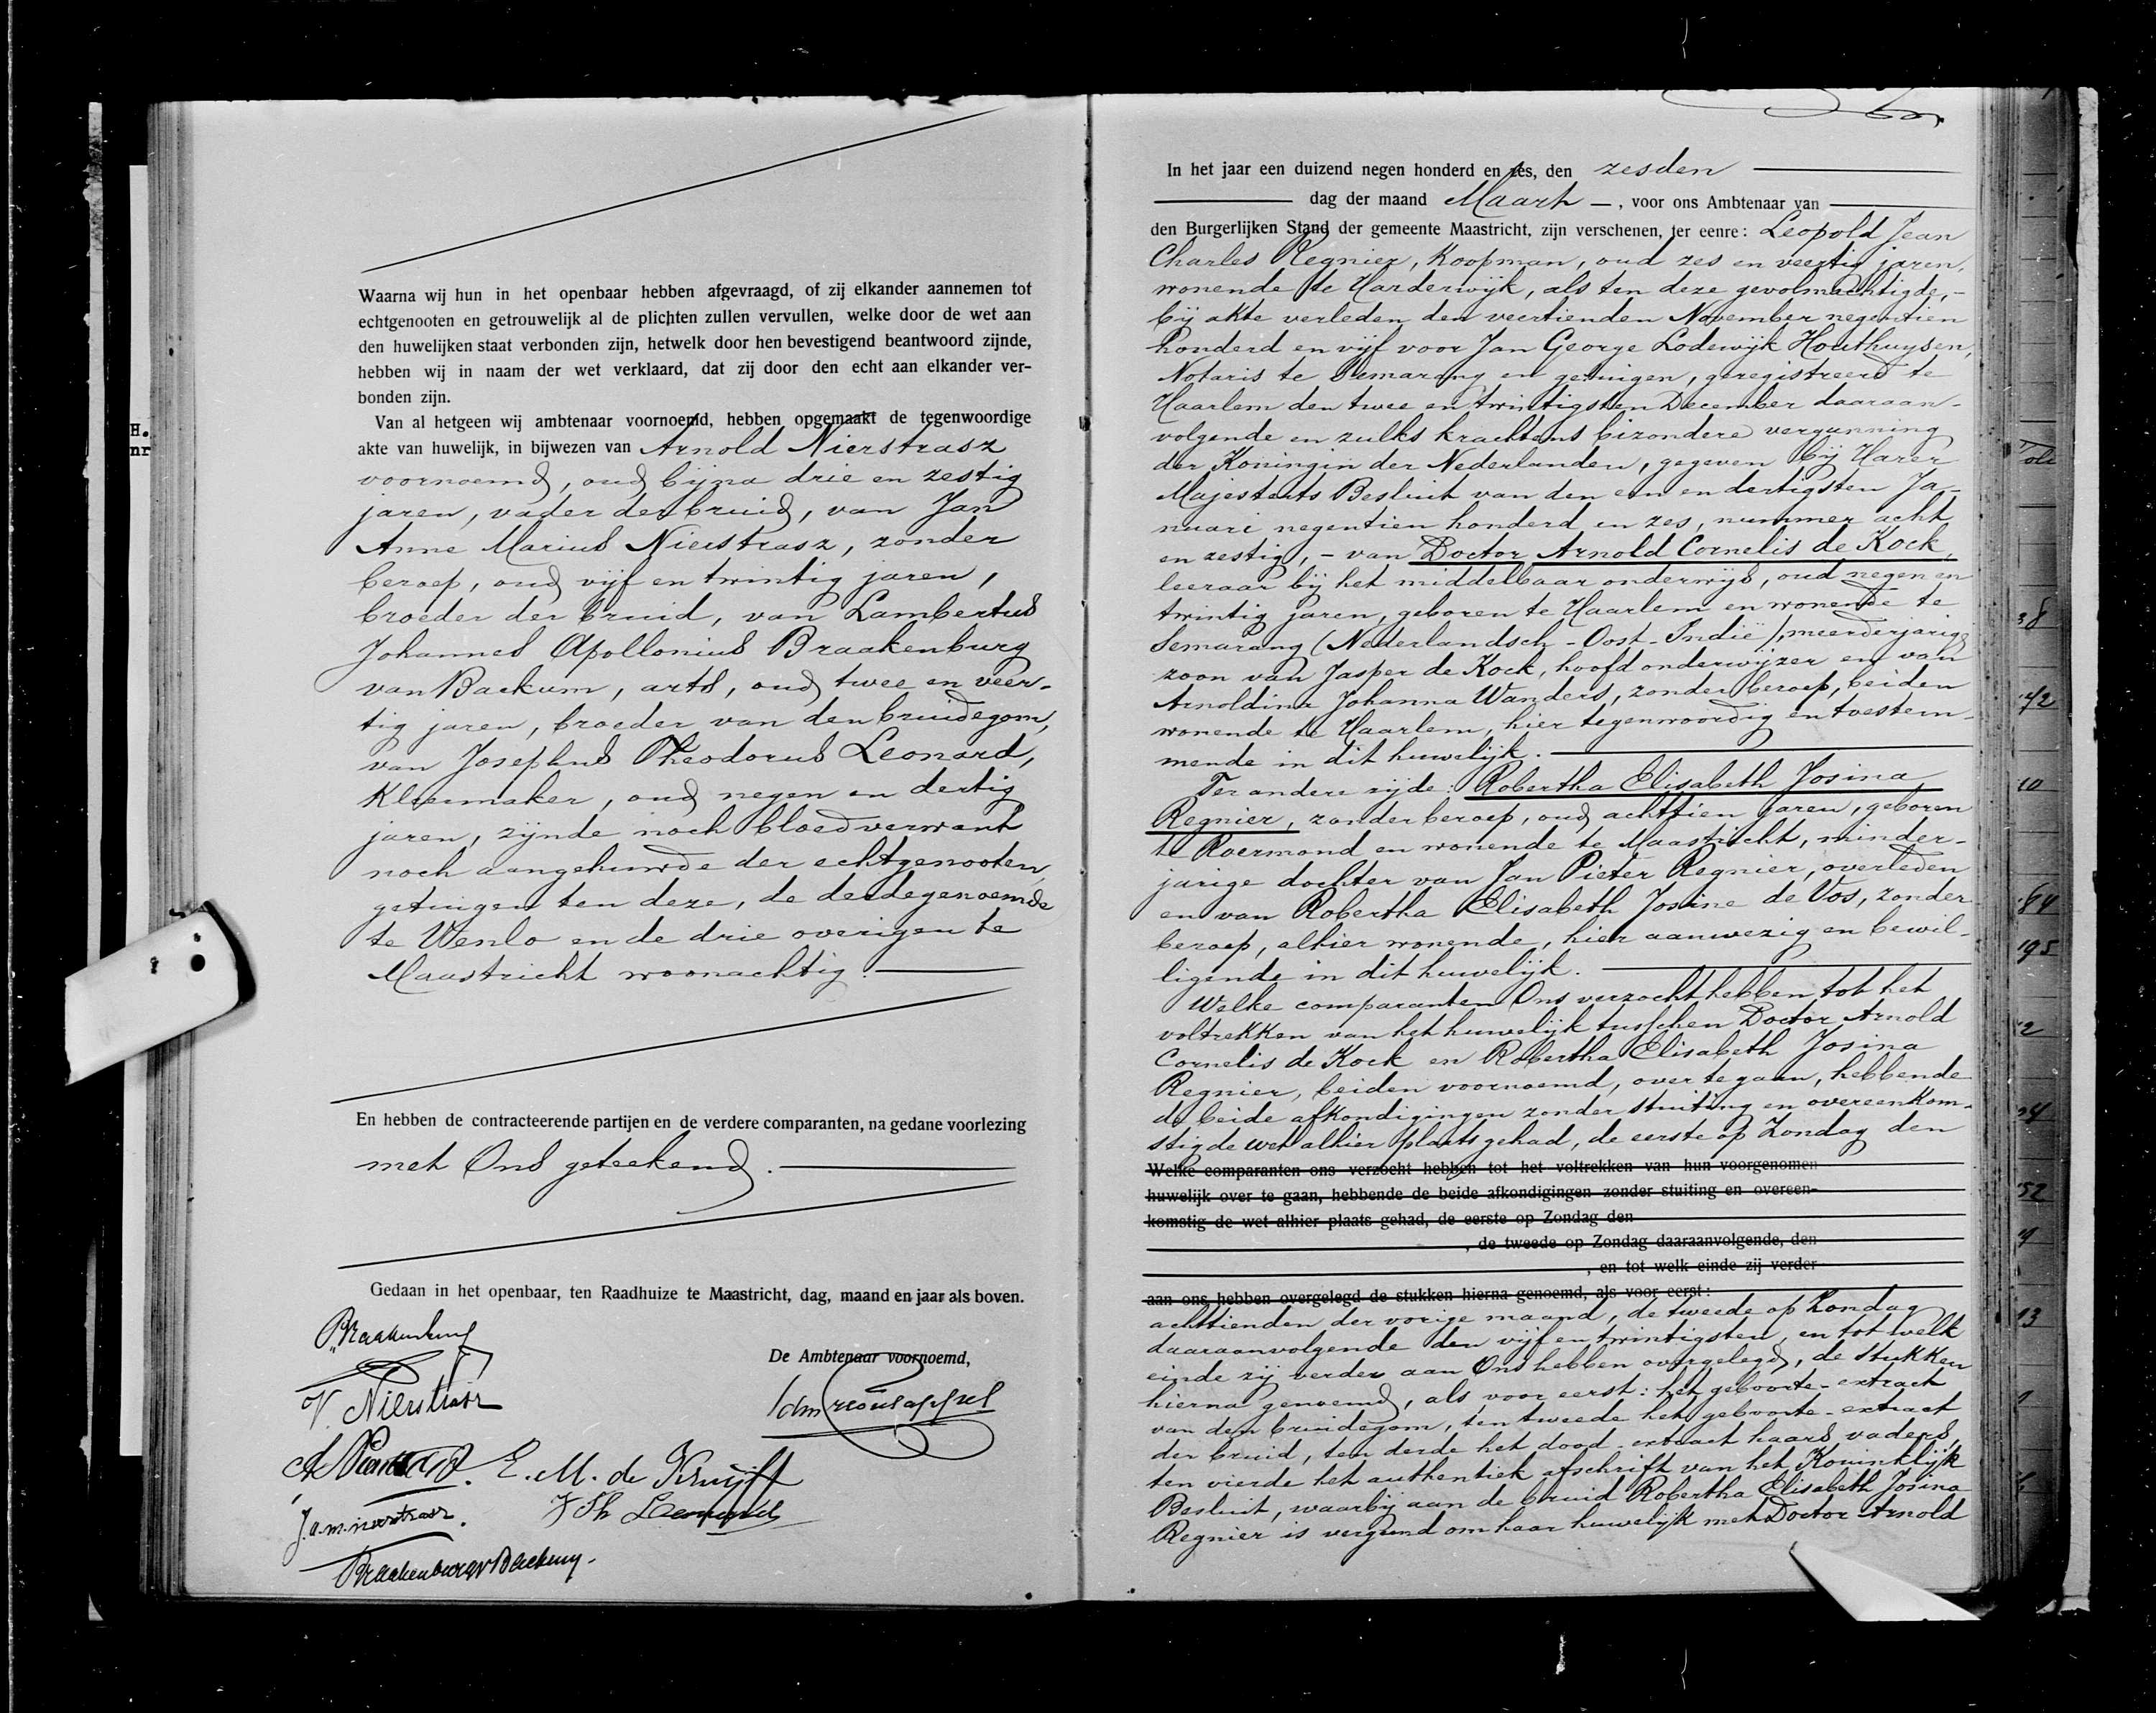 Waarna wij hun in het openbaar hebben afgevraagd, of zij elkander aannemen tot
echtgenooten en getrouwelijk al de plichten zullen vervullen, welke door de wet aan
den huwelijken staat verbonden zijn, hetwelk door hen bevestigend beantwoord zijnde,
hebben wij in naam der wet verklaard, dat zij door den echt aan elkander ver-
bonden zijn.
Van al hetgeen wij ambtenaar voornoemd, hebben opgemaakt de tegenwoordige
akte van huwelijk, in bijwezen van Arnold Nierstrasz
voornoemd, oud bijna drie en zestig
jaren, vader der bruid, van Jan
Anne Marius Nierstrasz, zonder
beroep, oud vijf en twintig jaren,
broeder der bruid, van Lambertus
Johannes Apollonius Braakenburg
van Backum, arts, oud twee en veer-
tig jaren, broeder van den bruidegom,
van Josephus Theodorus Leonard,
Kleermaker, oud negen en dertig
jaren, zijnde noch bloedverwant
noch aangehuwde der echtgenooten,
getuigen ten deze, de derdegenoemde
te Venlo en de drie overigen te
Maastricht woonachtig.
En hebben de contracteerende partijen en de verdere comparanten, na gedane voorlezing
met Ons geteekend.
Gedaan in het openbaar, ten Raadhuize te Maastricht, dag, maand en jaar als boven.
Braakenburg
De Ambtenaar voornoemd,
V. Nierstrasz
E. M. de Kruijff
J.a.m. nierstrasz.
J Th Leonard
Braakenburg v Backum.
H.
nr
In het jaar een duizend negen honderd en zes, den zesden
dag der maand Maart, voor ons Ambtenaar van
den Burgerlijken Stand der gemeente Maastricht, zijn verschenen, ter eenre: Leopold Jean
Charles Regnier, Koopman, oud zes en veertig jaren,
wonende te Harderwijk, als ten deze gevolmachtigde,-
bij akte verleden den veertienden November negentien
honderd en vijf voor Jan George Lodewijk Houthuysen,
Notaris te Semarang en getuigen, geregistreerd te
Haarlem den twee en twintigsten December daaraan-
volgende en zulks krachtens bizondere vergunning
der Koningin der Nederlanden, gegeven bij Harer
Majesteits Besluit van den een en dertigsten Ja-
nuari negentien honderd en zes, nummer acht
en zestig, - van Doctor Arnold Cornelis de Kock,
leeraar bij het middelbaar onderwijs, oud negen en
twintig jaren, geboren te Haarlem en wonende te
Semarang (Nederlandsch-Oost-Indië), meerderjarige
zoon van Jasper de Kock, hoofdonderwijzer en van
Arnoldina Johanna Wanders, zonder beroep, beiden
wonende te Haarlem, hier tegenwoordig en toestem-
mende in dit huwelijk.
Ter andere zijde: Robertha Elisabeth Josina
Regnier, zonder beroep, oud achttien jaren, geboren
te Roermond en wonende te Maastricht, minder-
jarige dochter van Jan Pieter Regnier, overleden
en van Robertha Elisabeth Josine de Vos, zonder
beroep, alhier wonende, hier aanwezig en bewil-
ligende in dit huwelijk.
Welke comparanten Ons verzocht hebben tot het
voltrekken van het huwelijk tusschen Doctor Arnold
Cornelis de Kock en Robertha Elisabeth Josina
Regnier, beiden voornoemd, over te gaan, hebbende
de beide afkondigingen zonder stuiting en overeenkom-
stig de wet alhier plaats gehad, de eerste op Zondag den
Welke comparanten ons verzocht hebben tot het voltrekken van hun voorgenomen
huwelijk over te gaan, hebbende de beide afkondigingen zonder stuiting en overeen-
komstig de wet alhier plaats gehad, de eerste op Zondag den
, de tweede op Zondag daaraanvolgende, den
, en tot welk einde zij verder
aan ons hebben overgelegd de stukken hierna genoemd, als voor eerst:
achttienden der vorige maand, de tweede op Zondag
daaraanvolgende den vijf en twintigsten, en tot welk
einde zij verder aan Ons hebben overgelegd, de stukken
hierna genoemd, als voor eerst: het geboorte-extract
van den bruidegom, ten tweede het geboorte-extract
der bruid, ten derde het dood-extract haars vaders,
ten vierde het authentiek afschrift van het Koninklijk
Besluit, waarbij aan de bruid Robertha Elisabeth Josina
Regnier is vergund om haar huwelijk met Doctor Arnold